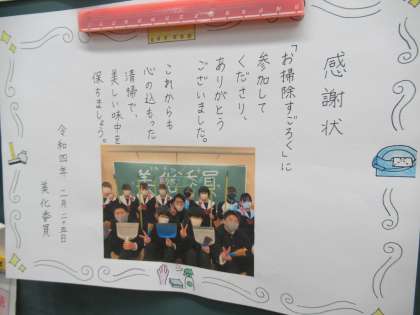 感謝状
「お掃除すごろく」に
参加して
くださり、
ありがとう
ございました。
これからも
心の込もった
清掃で、
美しい味中を
保ちましょう。
令和四年 二月二五日
美化委員
美化委員